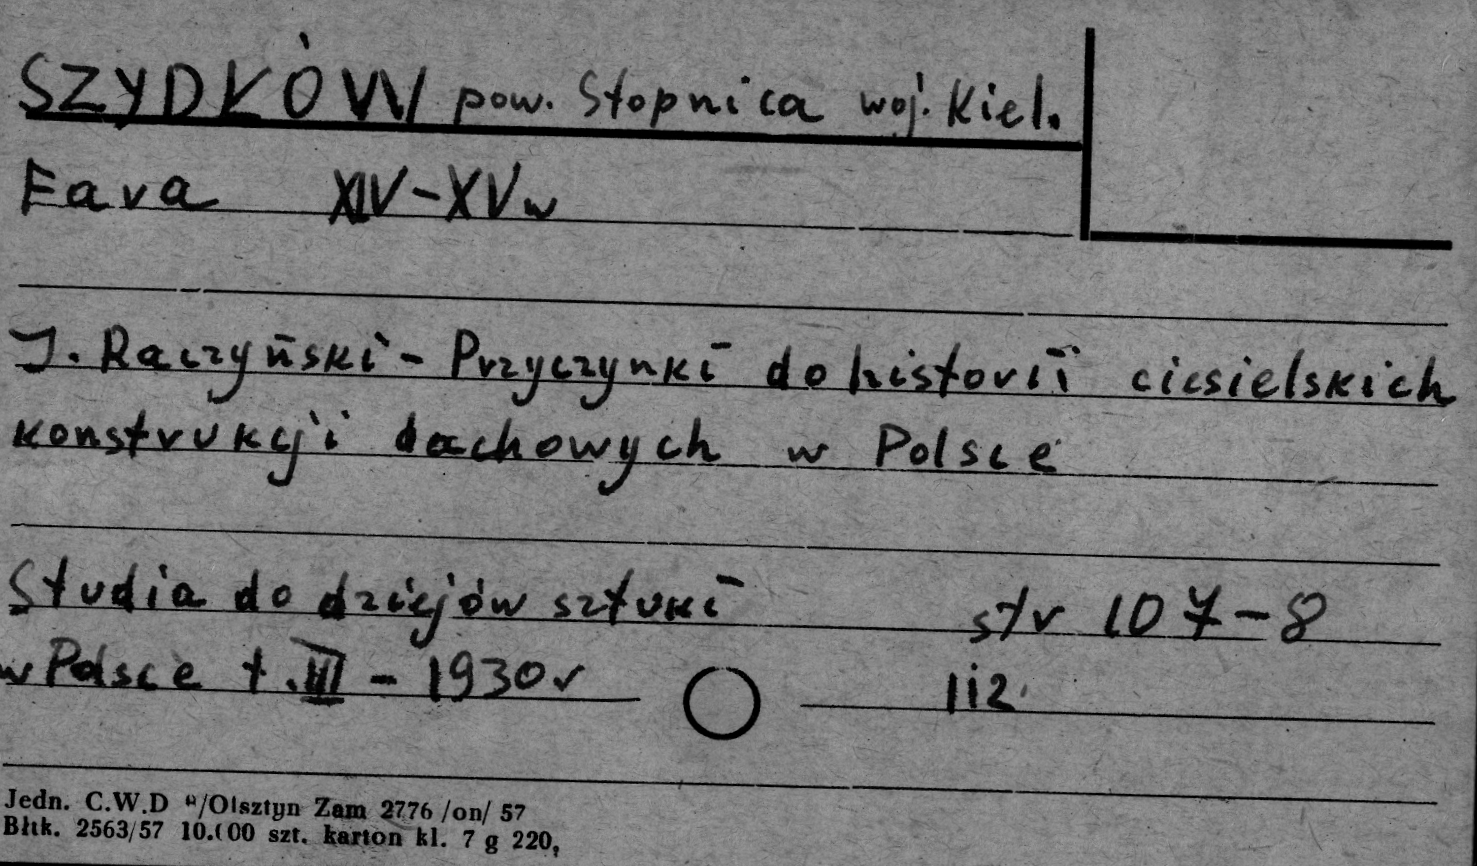 SZYDŁÓW pow. Stopnica woj. Kiel.
Fara XIV-XVw
J. Raczyński - Przyczynki do historii ciesielskich
konstrukcji dachowych w Polsce
Studia do dziejów sztuki str 107-8
w Polsce t. III - 1930r 112
Jedn. C.W.D "/Olsztyn Zam 2776 /on/ 57
Błtk. 2563/57 10.000 szt. karton kl. 7 g 220,